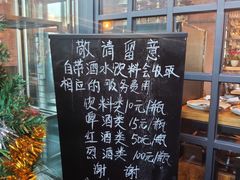 敬请留意
自带酒水饮料会收取
相应的服务费用
饮料类10元/瓶
啤酒类15元/瓶
红酒类50元/瓶
烈酒类100元/瓶
谢 谢